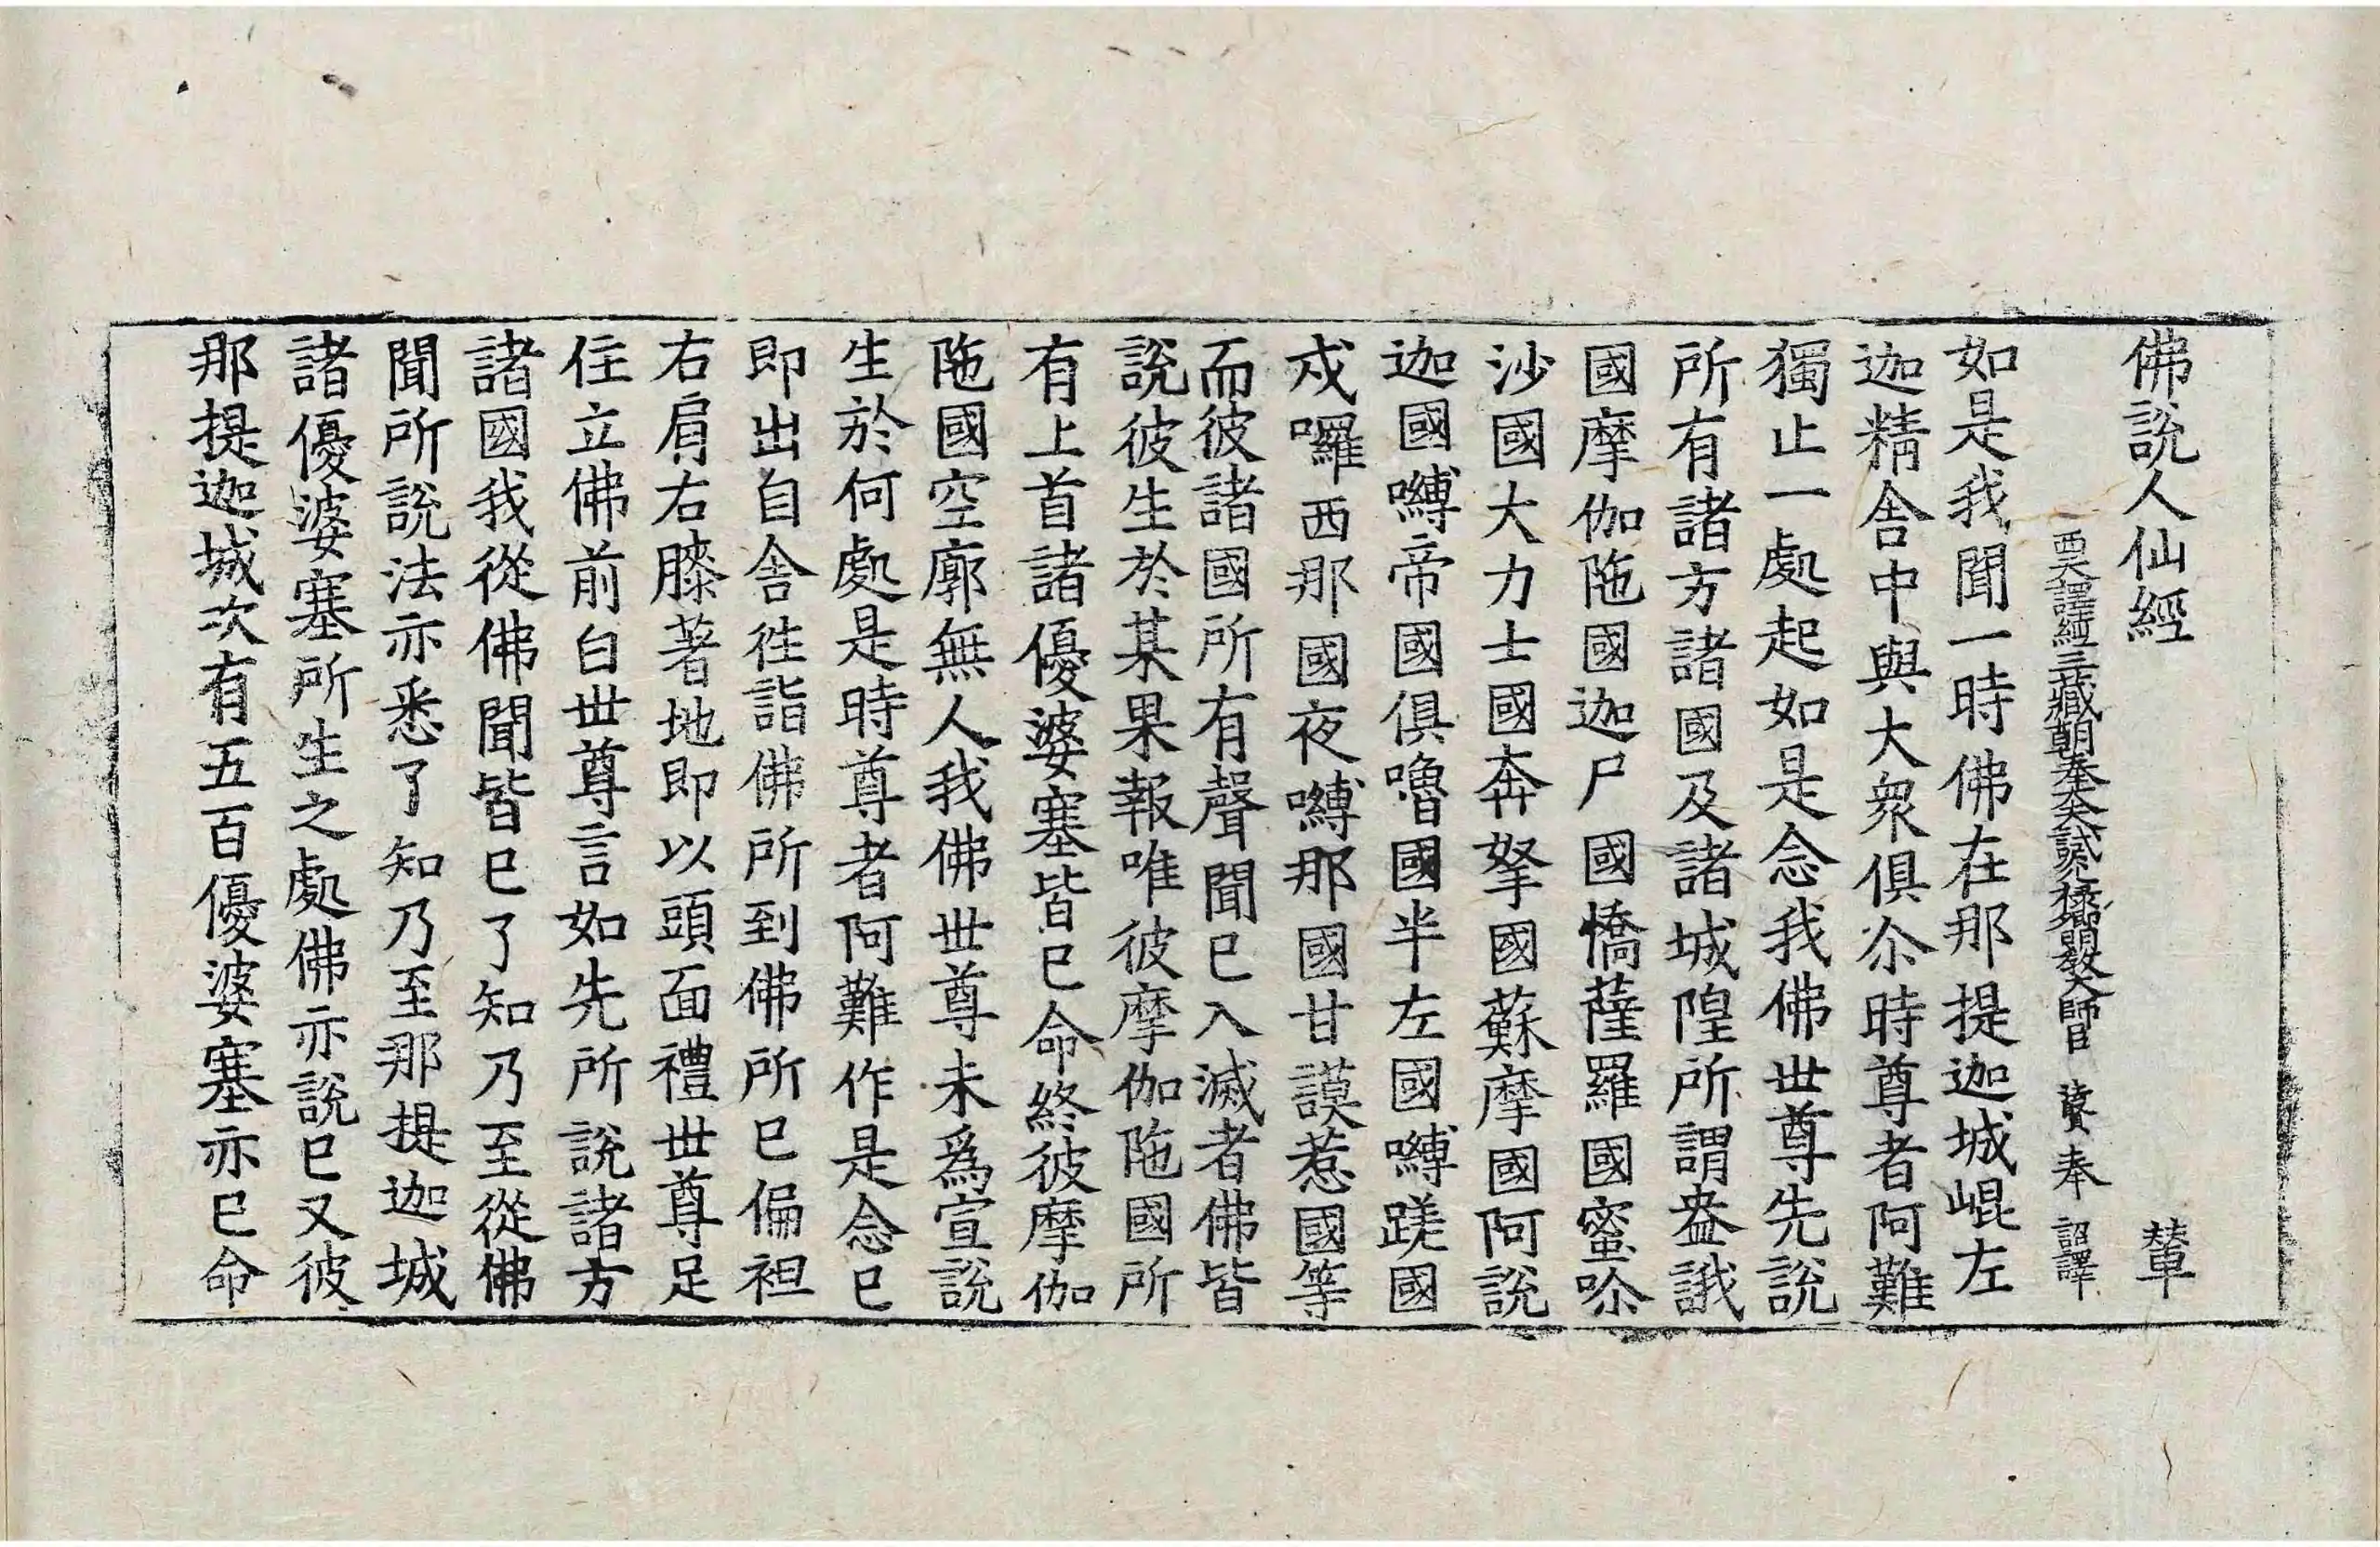 佛說人仙經 輦
西天譯經三藏朝奉大夫試光祿卿明教大師臣 法賢 奉 詔譯
如是我聞一時佛在那提迦城崐左
迦精舍中與大衆俱尒時尊者阿難
獨止一處起如是念我佛世尊先說
所有諸方諸國及諸城隍所謂盎誐
國摩伽陁國迦尸國憍薩羅國蜜吩
沙國大力士國奔拏國蘇摩國阿說
迦國嚩帝國俱嚕國半左國嚩蹉國
戍囉西那國夜嚩那國甘謨惹國等
而彼諸國所有聲聞已入滅者佛皆
說彼生於某果報唯彼摩伽陁國所
有上首諸優婆塞皆已命終彼摩伽
陁國空廓無人我佛世尊未爲宣說
生於何處是時尊者阿難作是念已
即出自舍徃詣佛所到佛所已偏袒
右肩右膝著地即以頭面禮世尊足
住立佛前白世尊言如先所說諸方
諸國我從佛聞皆已了知乃至從佛
聞所說法亦悉了知乃至那提迦城
諸優婆塞所生之處佛亦說已又彼
那提迦城次有五百優婆塞亦已命